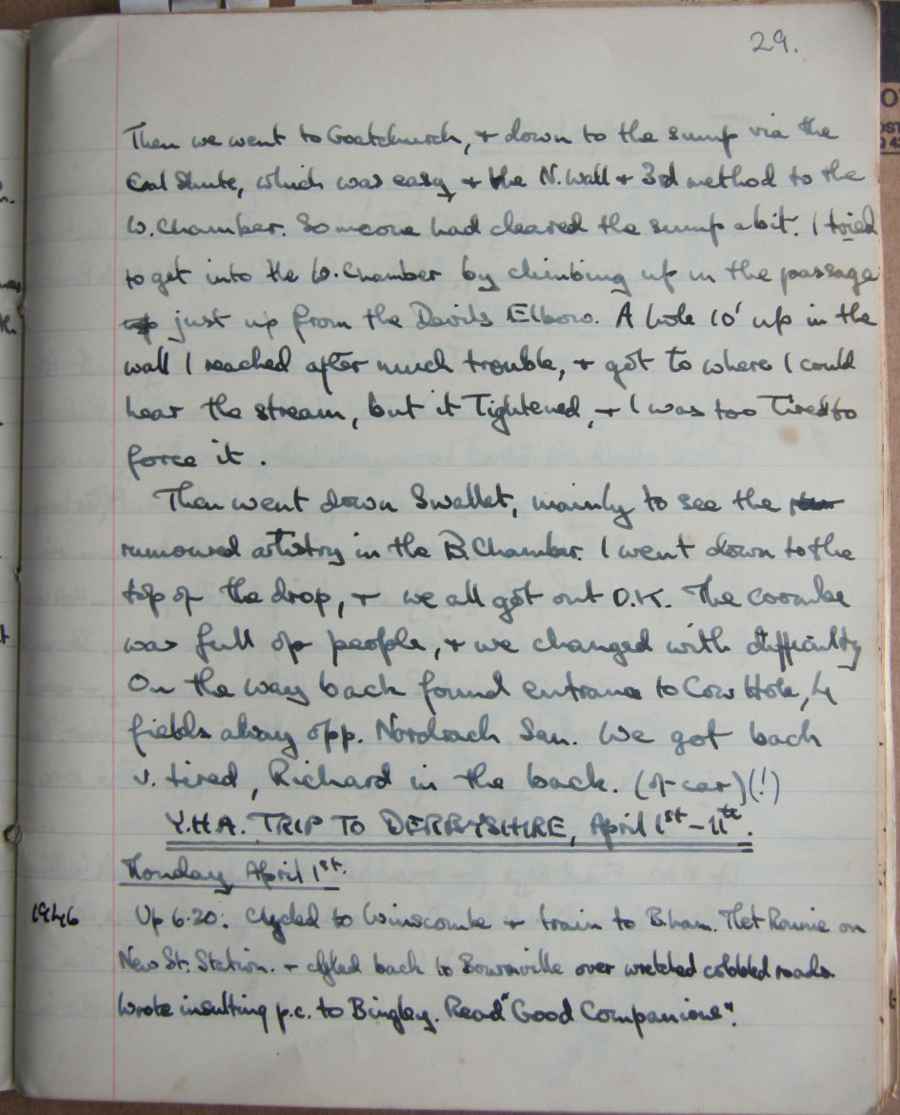 29.
Then we went to Goatchurch, + down to the sump via the
Coal Shute, which was easy + the N. Wall + 3rd method to the
W. Chamber. Someone had cleared the sump a bit. I tried
to get into the W. Chamber by climbing up in the passage
just up from the Devils Elbow. A hole 10' up in the
wall I reached after much trouble, + got to where I could
hear the stream, but it Tightened, + I was too Tired to
force it.
Then went down Swallet, mainly to see the
rumoured artistry in the B. Chamber. I went down to the
top of the drop, + we all got out O.K. The coombe
was full of people, + we changed with difficulty
On the way back found entrance to Cow Hole, 4
fields away opp. Nordrach San. We got back
v. tired, Richard in the back. (of car)(!)
Y.H.A. TRIP TO DERBYSHIRE, April 1st - 11th.
Monday April 1st.
1946 Up 6.20. Cycled to Winscombe + train to B'ham. Met Ronnie on
New St. Station. + cycled back to Bournville over wretched cobbled roads.
Wrote insulting p.c. to Bingley. Read "Good Companions".